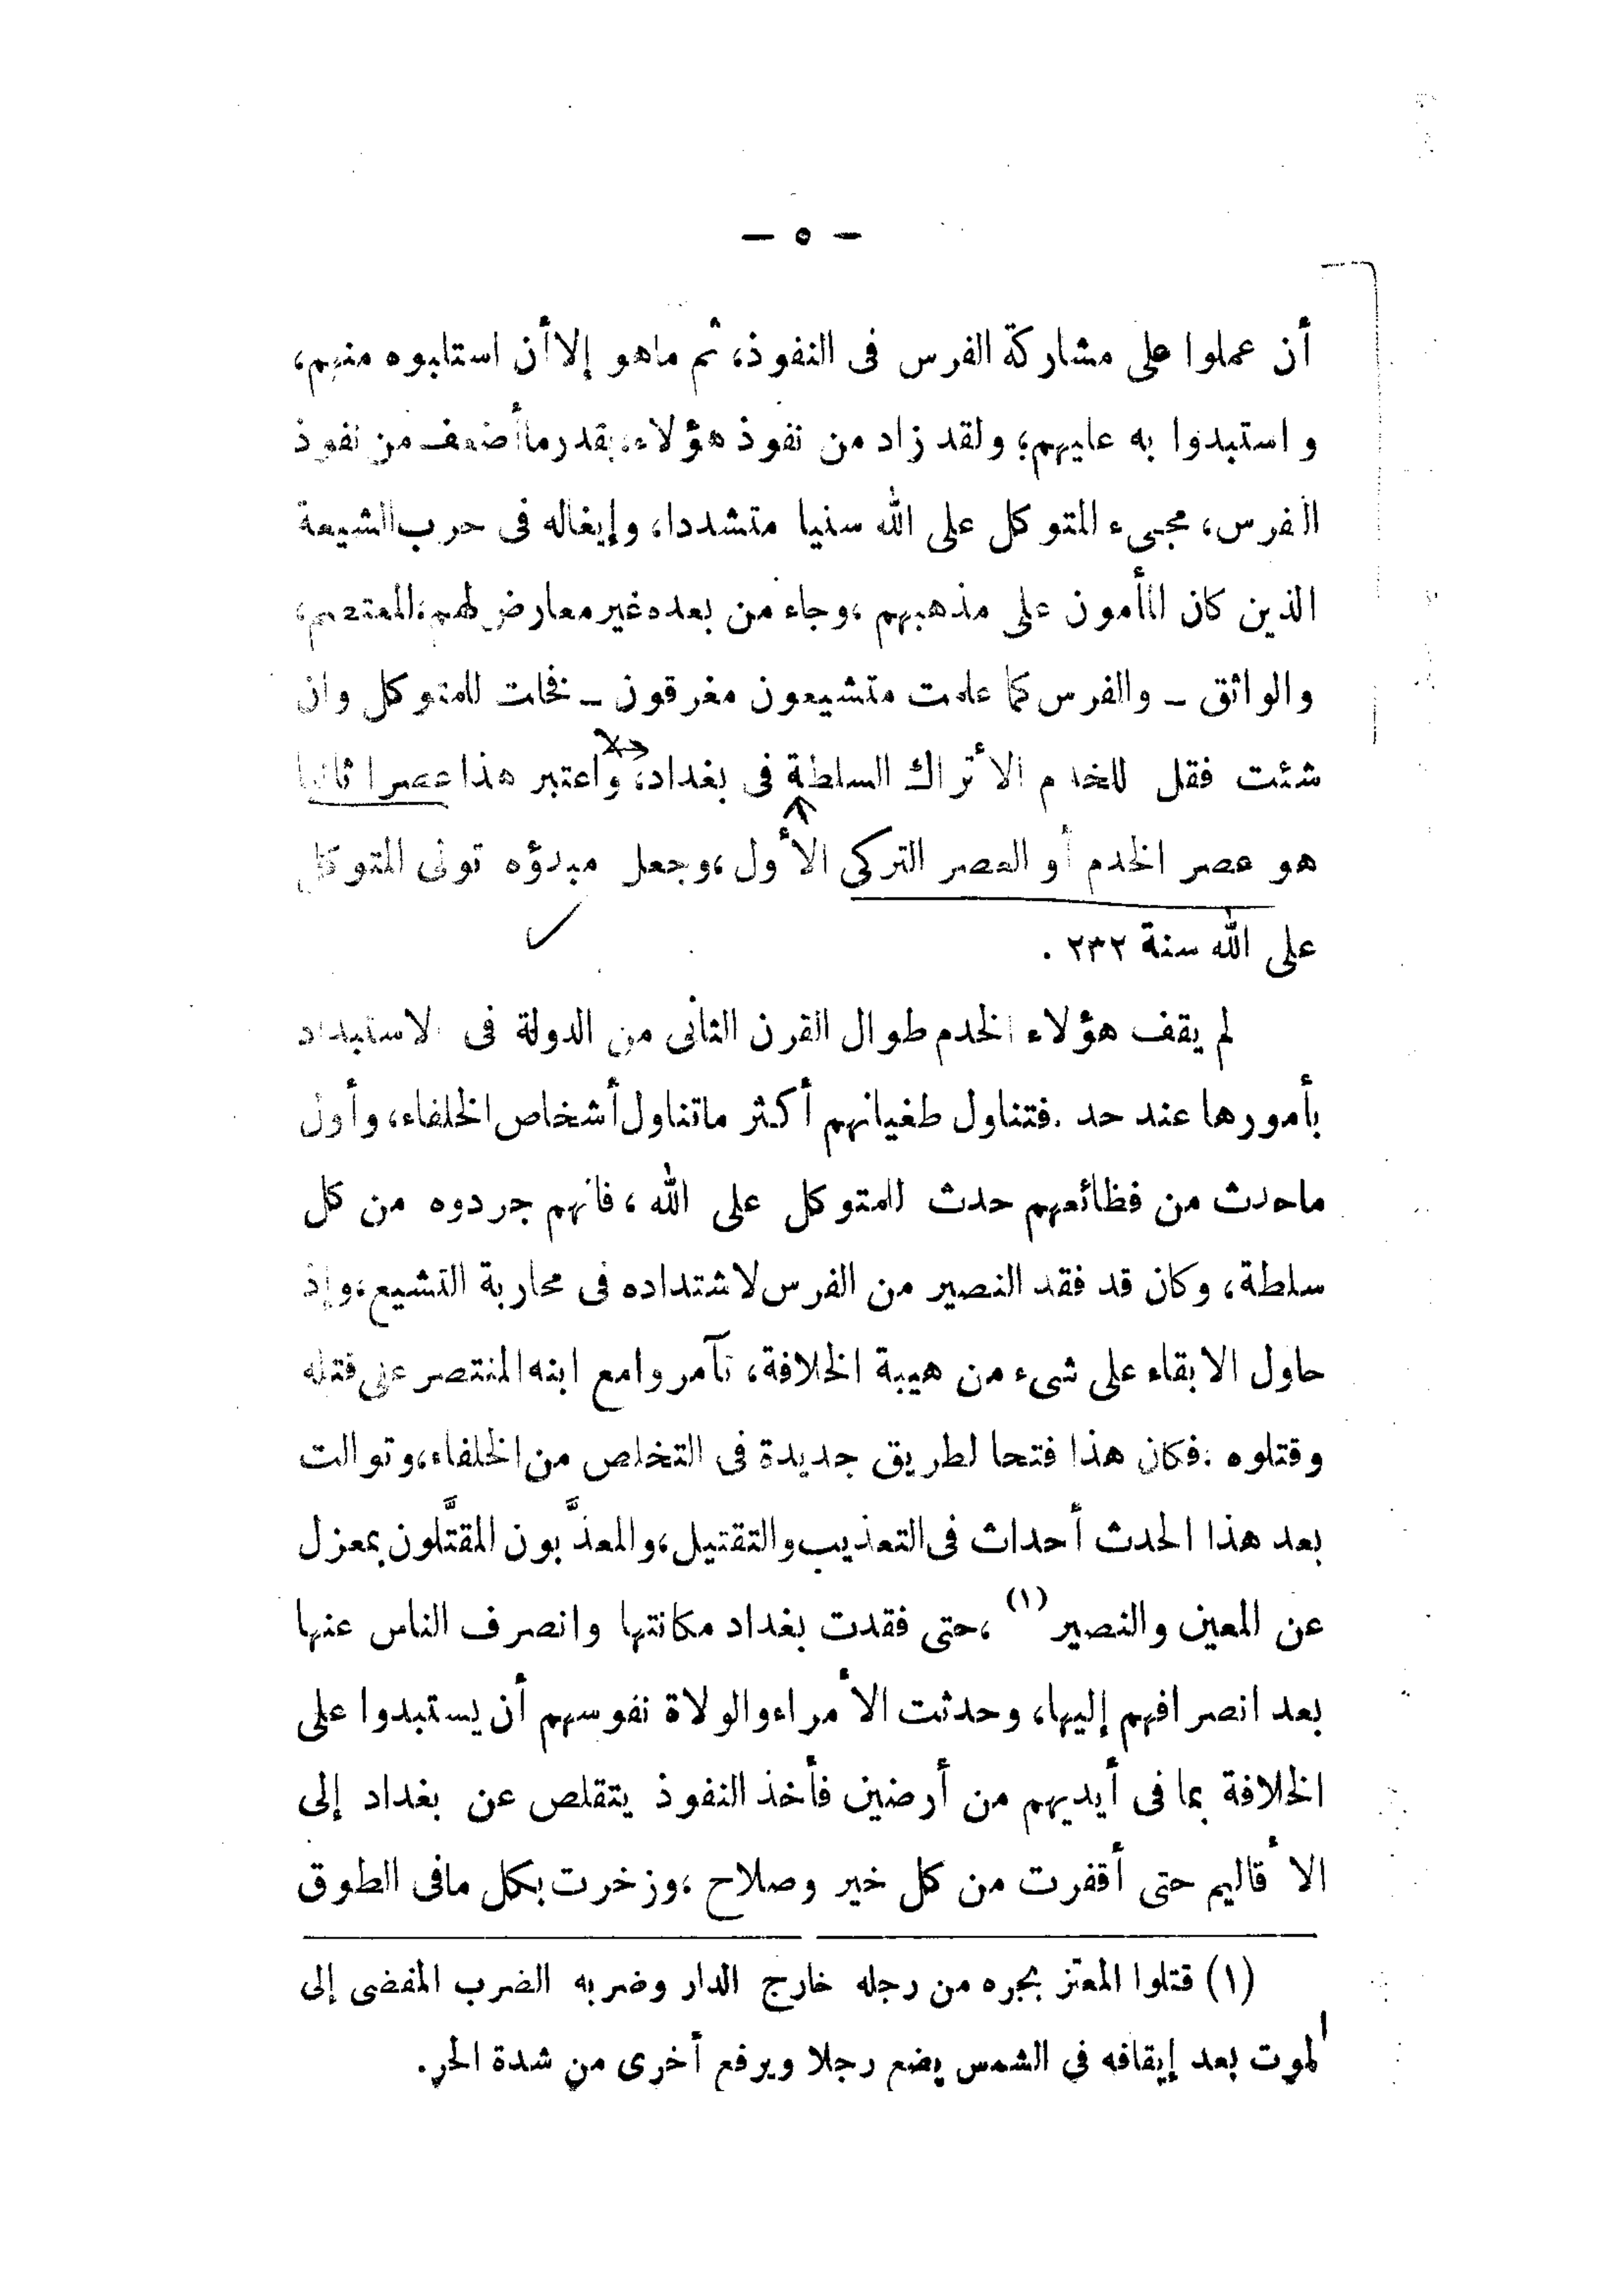 — ٥ —
أن عملوا على مشاركة الفرس فى النفوذ، ثم ماهو إلا أن استلبوه منهم،
واستبدوا به عليهم؛ ولقد زاد من نفوذ هؤلاء بقدر ما أضعف من نفوذ
الفرس، مجىء المتوكل على الله سنيا متشددا، وإيغاله فى حرب الشيعة
الذين كان المأمون على مذهبهم، وجاء من بعده غير معارض لهم، المعتصم،
والواثق ــ والفرس كما علمت متشيعون مغرقون ــ فخلت للمتوكل وان
شئت فقل للخدم الأتراك السلطة فى بغداد، واعتبر هذا عصرا ثانيا
هو عصر الخدم أو العصر التركى الأول، وجعل مبدؤه تولى المتوكل
على الله سنة ٢٣٢ .
لم يقف هؤلاء الخدم طوال القرن الثانى من الدولة فى الاستبداد
بأمورها عند حد . فتناول طغيانهم أكثر ماتناول أشخاص الخلفاء، وأول
ماحدث من فظائعهم حدث للمتوكل على الله ، فانهم جردوه من كل
سلطة، وكان قد فقد النصير من الفرس لاشتداده فى محاربة التشيع، وإذ
حاول الابقاء على شىء من هيبة الخلافة، تآمروا مع ابنه المنتصر على قتله
وقتلوه . فكان هذا فتحا لطريق جديدة فى التخلص من الخلفاء، وتوالت
بعد هذا الحدث أحداث فى التعذيب والتقتيل، والمعذَّبون المقتَّلون بمعزل
عن المعين والنصير (١) ، حتى فقدت بغداد مكانتها وانصرف الناس عنها
بعد انصرافهم إليها، وحدثت الأمراء والولاة نفوسهم أن يستبدوا على
الخلافة بما فى أيديهم من أرضين فأخذ النفوذ يتقلص عن بغداد إلى
الأقاليم حتى أقفرت من كل خير وصلاح ، وزخرت بكل مافى الطوق
(١) قتلوا المعتز بجره من رجله خارج الدار وضربه الضرب المفضى إلى
الموت بعد إيقافه فى الشمس يضع رجلا ويرفع أخرى من شدة الحر.